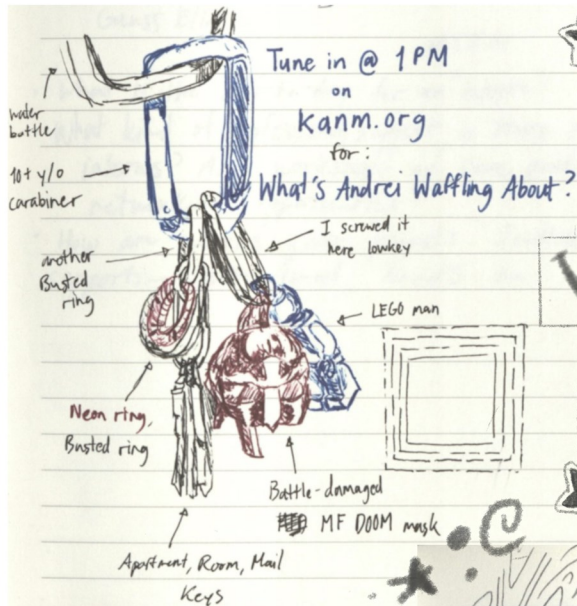 Tune in @ 1PM
on
kanm.org
for:
What's Andrei Waffling About?
water
bottle
10+ y/o
carabiner
another
Busted
ring
I screwed it
here lowkey
LEGO man
Neon ring,
Busted ring
Battle-damaged
MF DOOM mask
Apartment, Room, Mail
Keys